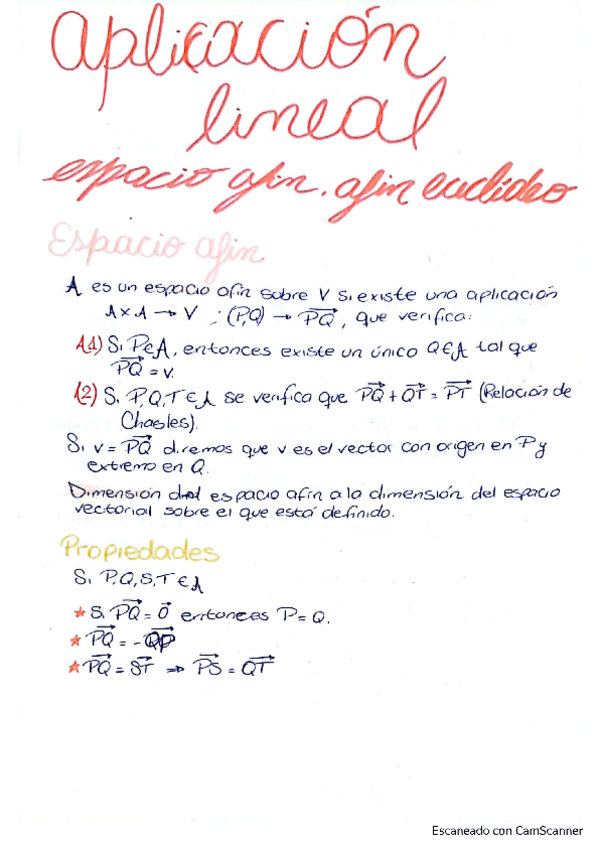 aplicación
lineal
espacio afín. afín euclídeo
Espacio afín
A es un espacio afín sobre V si existe una aplicación
A×A → V ; (P,Q) → PQ, que verifica:
A1) Si P∈A, entonces existe un único Q∈A tal que
PQ = v.
(2) Si P,Q,T ∈ A se verifica que PQ + QT = PT (Relación de
Chasles).
Si v = PQ diremos que v es el vector con origen en P y
extremo en Q.
Dimensión del espacio afín a la dimensión del espacio
vectorial sobre el que está definido.
Propiedades
Si P,Q,S,T ∈ A
★ Si PQ = 0 entonces P = Q.
★ PQ = -QP
★ PQ = ST ⇒ PS = QT
Escaneado con CamScanner